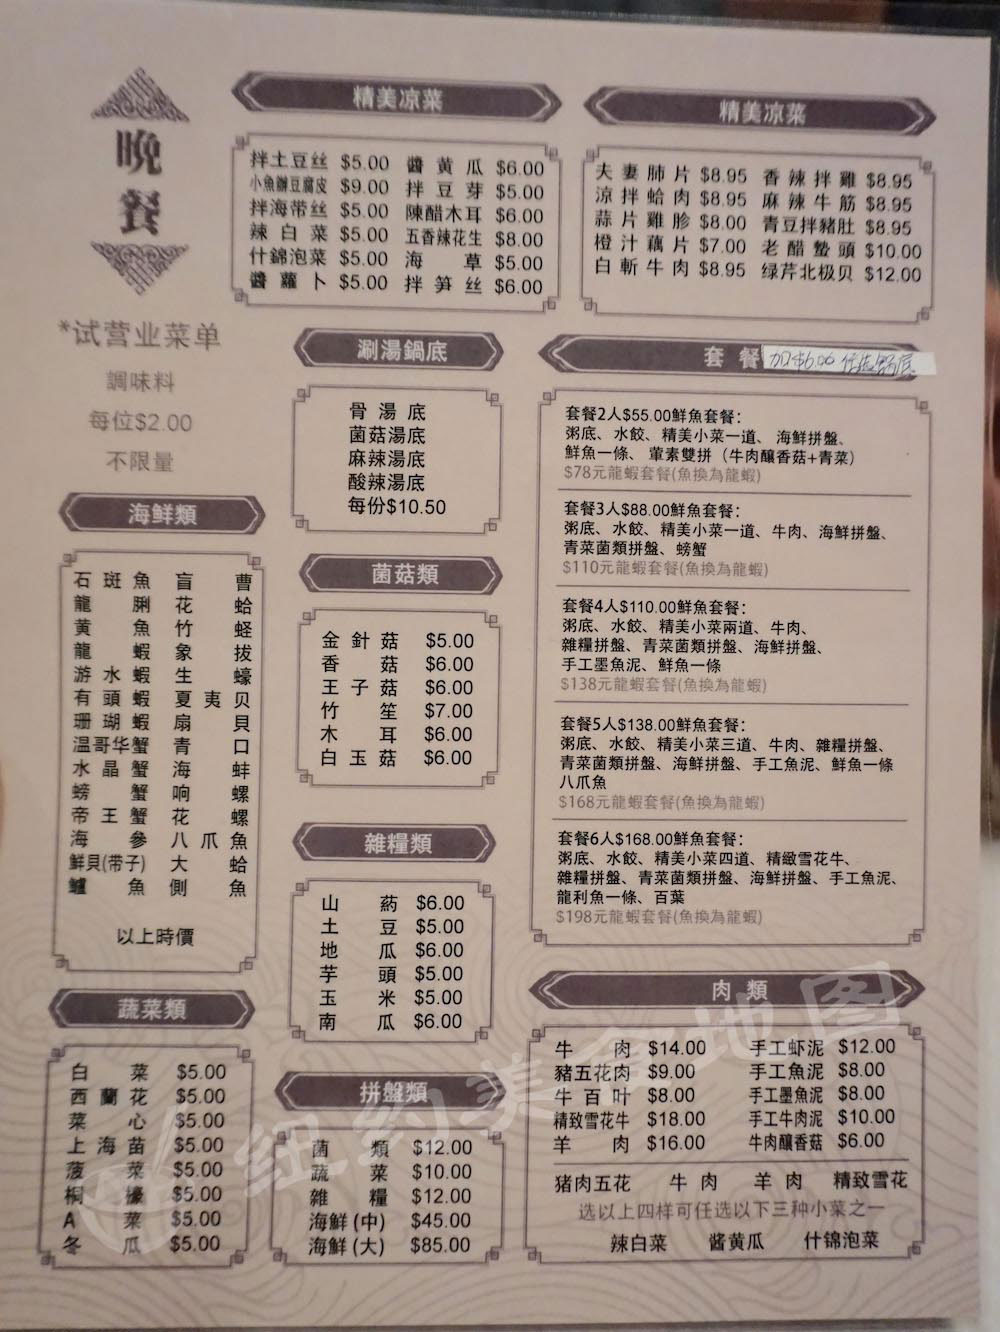 晚餐
*试营业菜单
調味料
每位$2.00
不限量
精美凉菜
拌土豆丝 $5.00 醬黄瓜 $6.00
小魚辦豆腐皮 $9.00 拌豆芽 $5.00
拌海带丝 $5.00 陳醋木耳 $6.00
辣白菜 $5.00 五香辣花生 $8.00
什錦泡菜 $5.00 海草 $5.00
醬蘿卜 $5.00 拌笋丝 $6.00
精美凉菜
夫妻肺片 $8.95 香辣拌雞 $8.95
涼拌蛤肉 $8.95 麻辣牛筋 $8.95
蒜片雞胗 $8.00 青豆拌豬肚 $8.95
橙汁藕片 $7.00 老醋蜇頭 $10.00
白斬牛肉 $8.95 绿芹北极贝 $12.00
海鮮類
石斑魚 盲曹
龍脷 花蛤
黄魚 竹蛏
龍蝦 象拔
游水蝦 生蠔
有頭蝦 夏夷贝
珊瑚蝦 扇貝
温哥华蟹 青口
水晶蟹 海蚌
螃蟹 响螺
帝王蟹 花螺
海參 八爪魚
鮮貝(带子) 大蛤
鱸魚 側魚
以上時價
蔬菜類
白菜 $5.00
西蘭花 $5.00
菜心 $5.00
上海苗 $5.00
菠菜 $5.00
桐壕 $5.00
A菜 $5.00
冬瓜 $5.00
涮湯鍋底
骨湯底
菌菇湯底
麻辣湯底
酸辣湯底
每份$10.50
菌菇類
金針菇 $5.00
香菇 $6.00
王子菇 $6.00
竹笙 $7.00
木耳 $6.00
白玉菇 $6.00
雜糧類
山药 $6.00
土豆 $5.00
地瓜 $6.00
芋頭 $5.00
玉米 $5.00
南瓜 $6.00
拼盤類
菌類 $12.00
蔬菜 $10.00
雜糧 $12.00
海鮮(中) $45.00
海鮮(大) $85.00
套餐 加$6.00 任选鍋底
套餐2人$55.00鮮魚套餐：
粥底、水餃、精美小菜一道、海鮮拼盤、
鮮魚一條、葷素雙拼（牛肉釀香菇+青菜）
$78元龍蝦套餐(魚換為龍蝦)
套餐3人$88.00鮮魚套餐：
粥底、水餃、精美小菜一道、牛肉、海鮮拼盤、
青菜菌類拼盤、螃蟹
$110元龍蝦套餐(魚換為龍蝦)
套餐4人$110.00鮮魚套餐：
粥底、水餃、精美小菜兩道、牛肉、
雜糧拼盤、青菜菌類拼盤、海鮮拼盤、
手工墨魚泥、鮮魚一條
$138元龍蝦套餐(魚換為龍蝦)
套餐5人$138.00鮮魚套餐：
粥底、水餃、精美小菜三道、牛肉、雜糧拼盤、
青菜菌類拼盤、海鮮拼盤、手工魚泥、鮮魚一條
八爪魚
$168元龍蝦套餐(魚換為龍蝦)
套餐6人$168.00鮮魚套餐：
粥底、水餃、精美小菜四道、精緻雪花牛、
雜糧拼盤、青菜菌類拼盤、海鮮拼盤、手工魚泥、
龍利魚一條、百葉
$198元龍蝦套餐(魚換為龍蝦)
肉類
牛肉 $14.00 手工虾泥 $12.00
豬五花肉 $9.00 手工魚泥 $8.00
牛百叶 $8.00 手工墨魚泥 $8.00
精致雪花牛 $18.00 手工牛肉泥 $10.00
羊肉 $16.00 牛肉釀香菇 $6.00
猪肉五花 牛肉 羊肉 精致雪花
选以上四样可任选以下三种小菜之一
辣白菜 酱黄瓜 什锦泡菜
纽约美食地图